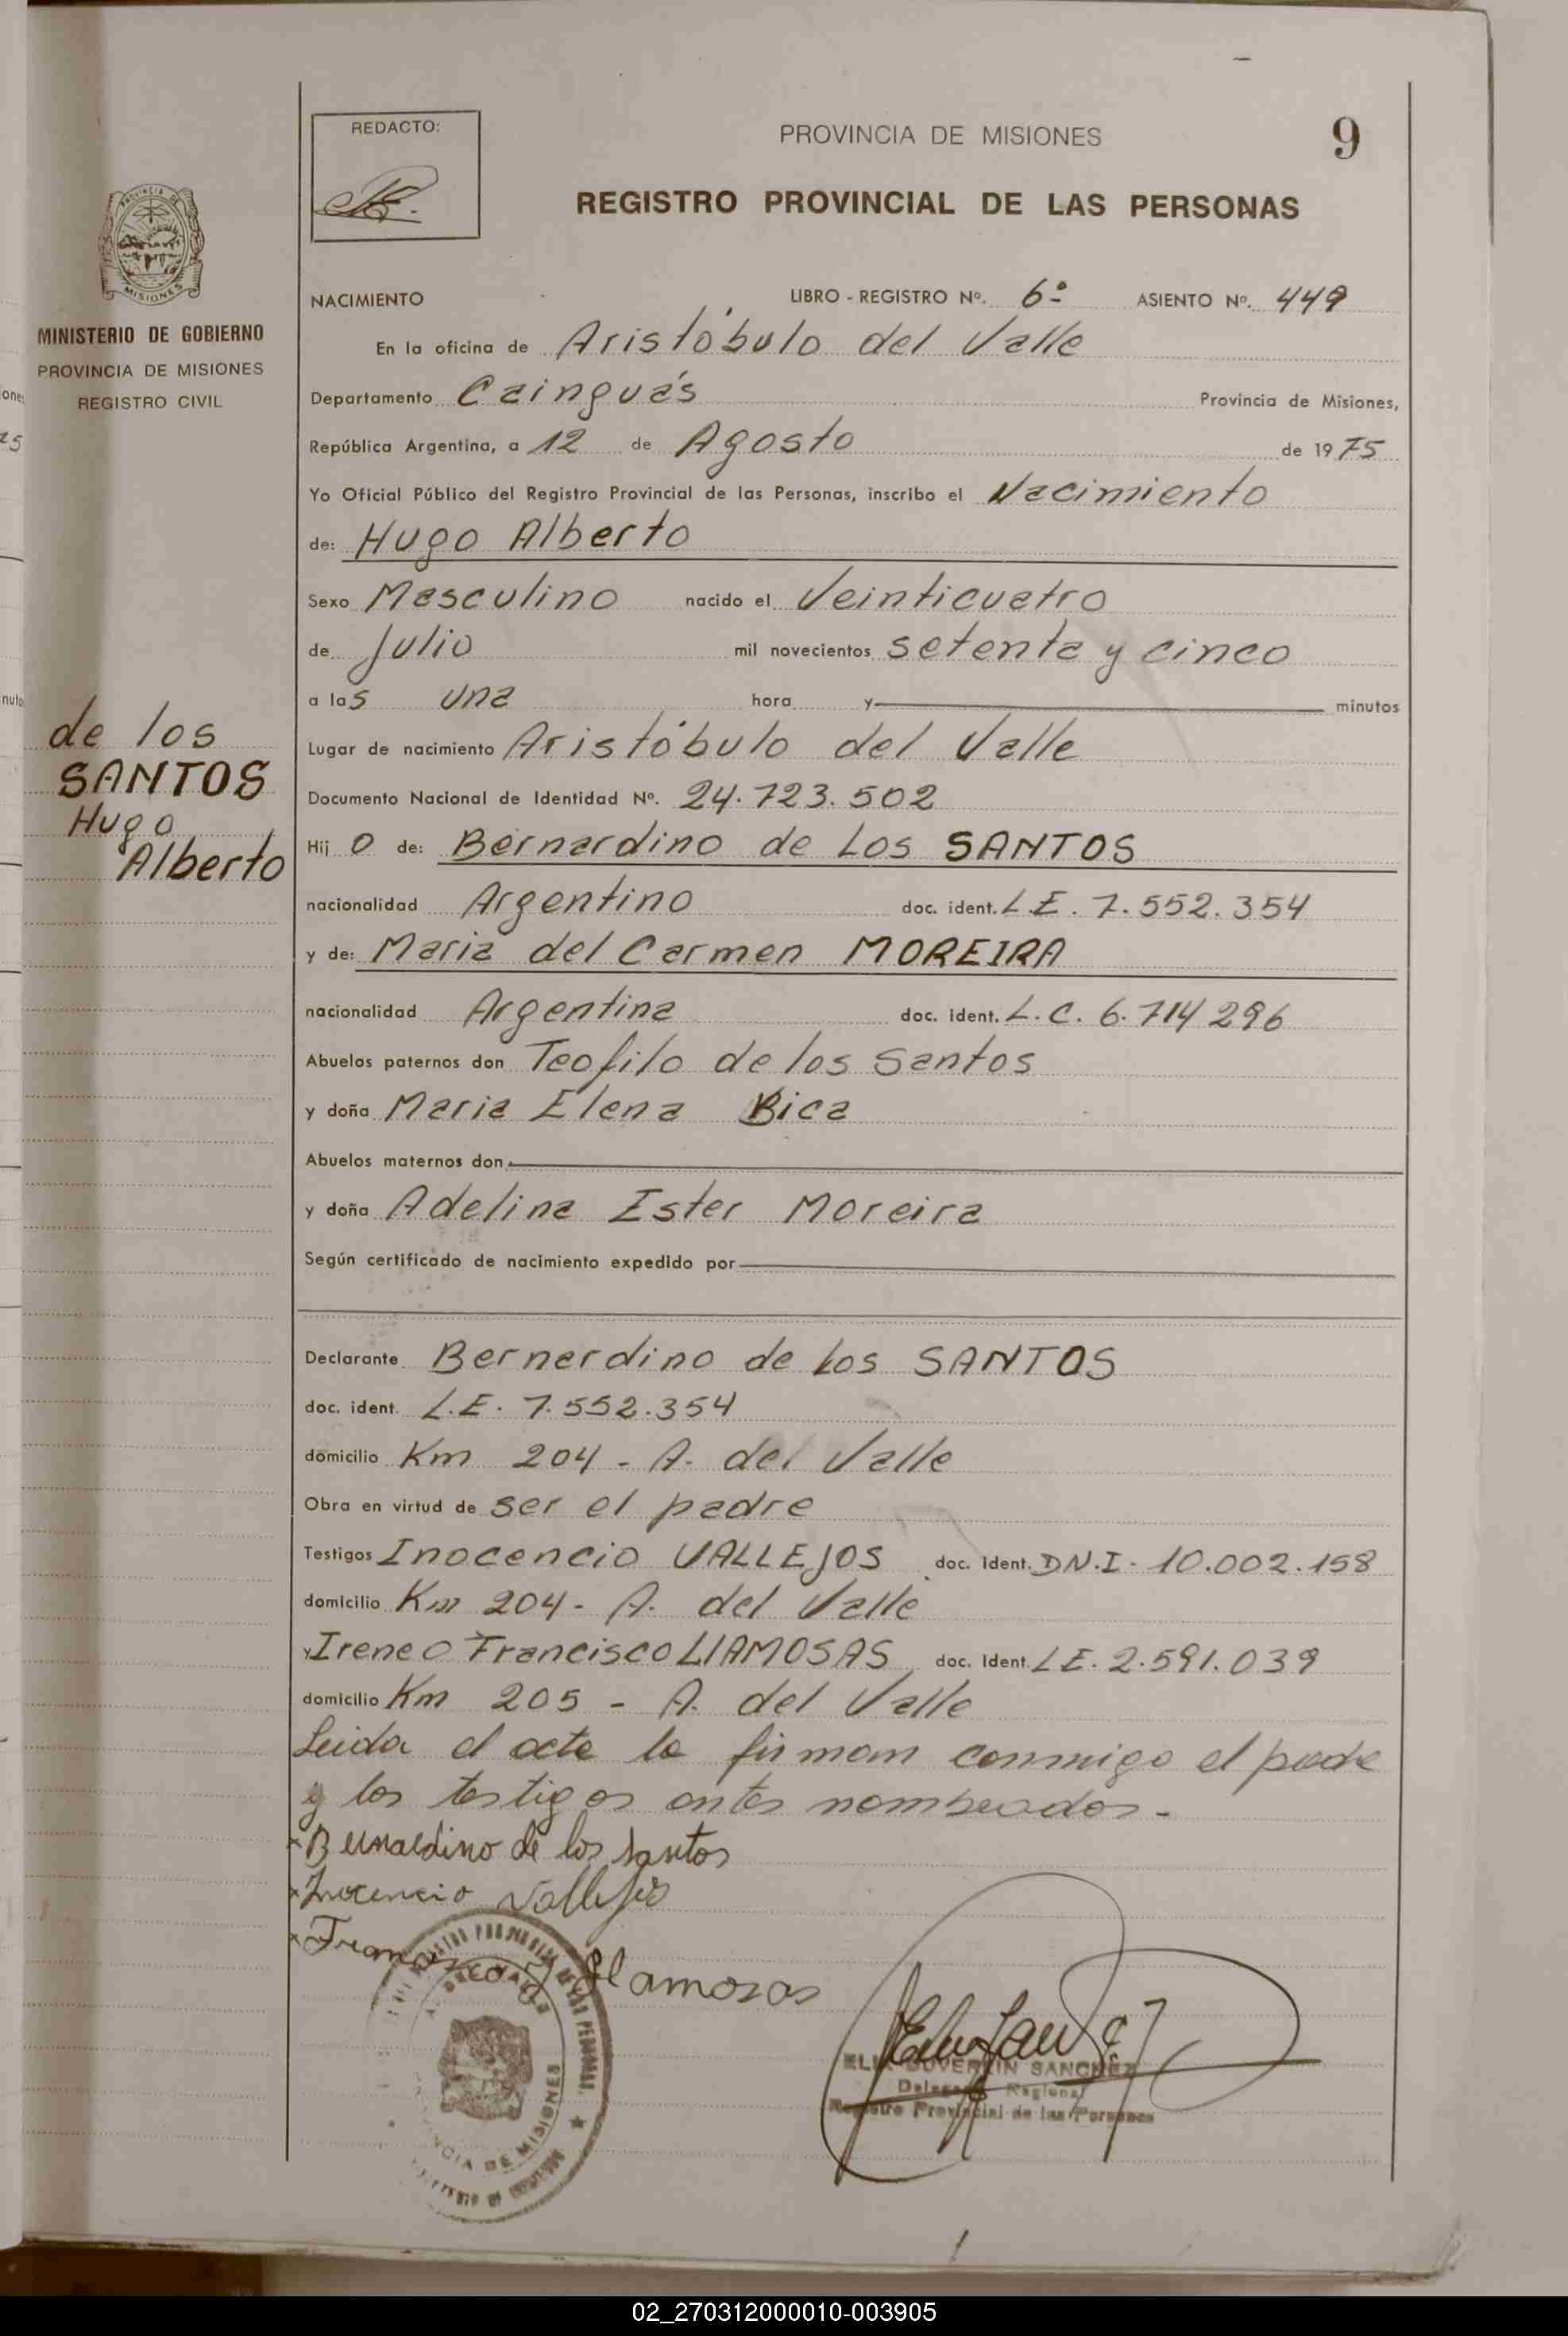 REDACTO:
PROVINCIA DE MISIONES
9
REGISTRO PROVINCIAL DE LAS PERSONAS
PROVINCIA DE
MISIONES
MINISTERIO DE GOBIERNO
PROVINCIA DE MISIONES
REGISTRO CIVIL
NACIMIENTO LIBRO - REGISTRO Nº. 6º ASIENTO Nº. 449
En la oficina de Aristóbulo del Valle
Departamento Cainguás Provincia de Misiones,
República Argentina, a 12 de Agosto de 1975
Yo Oficial Público del Registro Provincial de las Personas, inscribo el Nacimiento
de: Hugo Alberto
Sexo Masculino nacido el Veinticuatro
de Julio mil novecientos setenta y cinco
a las una hora y minutos
de los
SANTOS
Hugo
Alberto
Lugar de nacimiento Aristóbulo del Valle
Documento Nacional de Identidad Nº. 24.723.502
Hij o de: Bernardino de Los SANTOS
nacionalidad Argentino doc. ident. L.E. 7.552.354
y de: Maria del Carmen MOREIRA
nacionalidad Argentina doc. ident. L.C. 6.714296
Abuelos paternos don Teofilo de los Santos
y doña Maria Elena Bica
Abuelos maternos don
y doña Adelina Ester Moreira
Según certificado de nacimiento expedido por
Declarante Bernardino de Los SANTOS
doc. ident. L.E. 7.552.354
domicilio Km 204 - A. del Valle
Obra en virtud de ser el padre
Testigos Inocencio VALLEJOS doc. ident. D.N.I- 10.002.158
domicilio Km 204- A. del Valle
y Ireneo Francisco LlAMOSAS doc. Ident. L E. 2.591.039
domicilio Km 205 - A. del Valle
Leida el acta la firman conmigo el padre
y los testigos antes nombrados-
x Bernaldino de los santos
x Inocencio Vallejos
x Francisco Llamosas
SANCHEZ
Delegado Regional
Registro Provincial de las Personas
PROVINCIA DE MISIONES
02_270312000010-003905